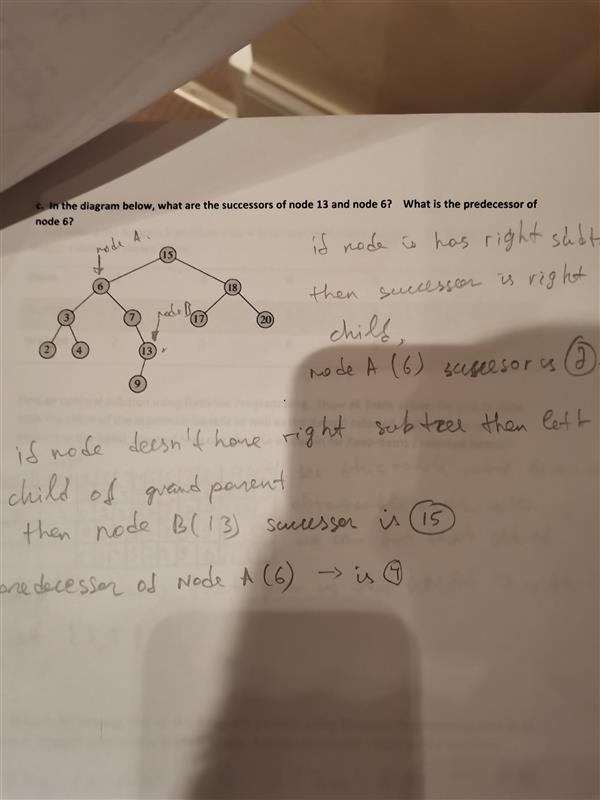 c. In the diagram below, what are the successors of node 13 and node 6? What is the predecessor of
node 6?
node A.
15
6
18
node B
3
7
17
20
2
4
13
9
if node is has right subt
then successor is right
child,
node A (6) sussesor is
if node doesn't have right subtree then left
child of grand parent
then node B(13) successor is 15
predecessor of Node A (6) → is 4